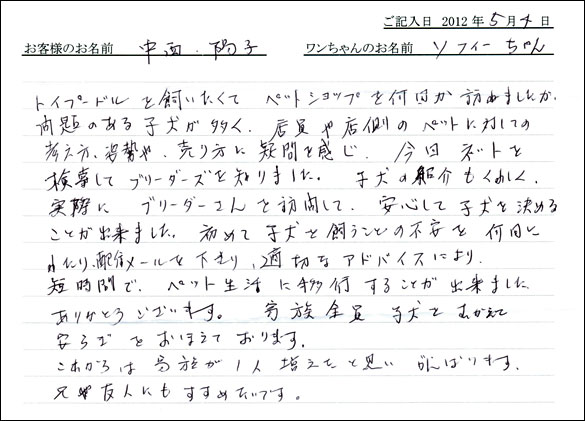 ご記入日 2012年5月4日
お客様のお名前 中西 陽子 ワンちゃんのお名前 ソフィーちゃん
トイプードルを飼いたくて ペットショップを何回か訪ねましたが、
問題のある子犬が多く、店員や店側のペットに対しての
考え方、姿勢や、売り方に疑問を感じ、今回ネットを
検索してブリーダーズを知りました。子犬の紹介もくわしく、
実際に ブリーダーさんを訪問して、安心して子犬を決める
ことが出来ました。初めて子犬を飼うことの不安を何回に
わたり、配信メールを下さり、適切なアドバイスにより、
短時間で、ペット生活に することが出来ました
ありがとうございます。家族全員 子犬をむかえて
安らぎをおぼえております。
これからは家族が1人増えたと思い がんばります。
友人にもすすめたいです。